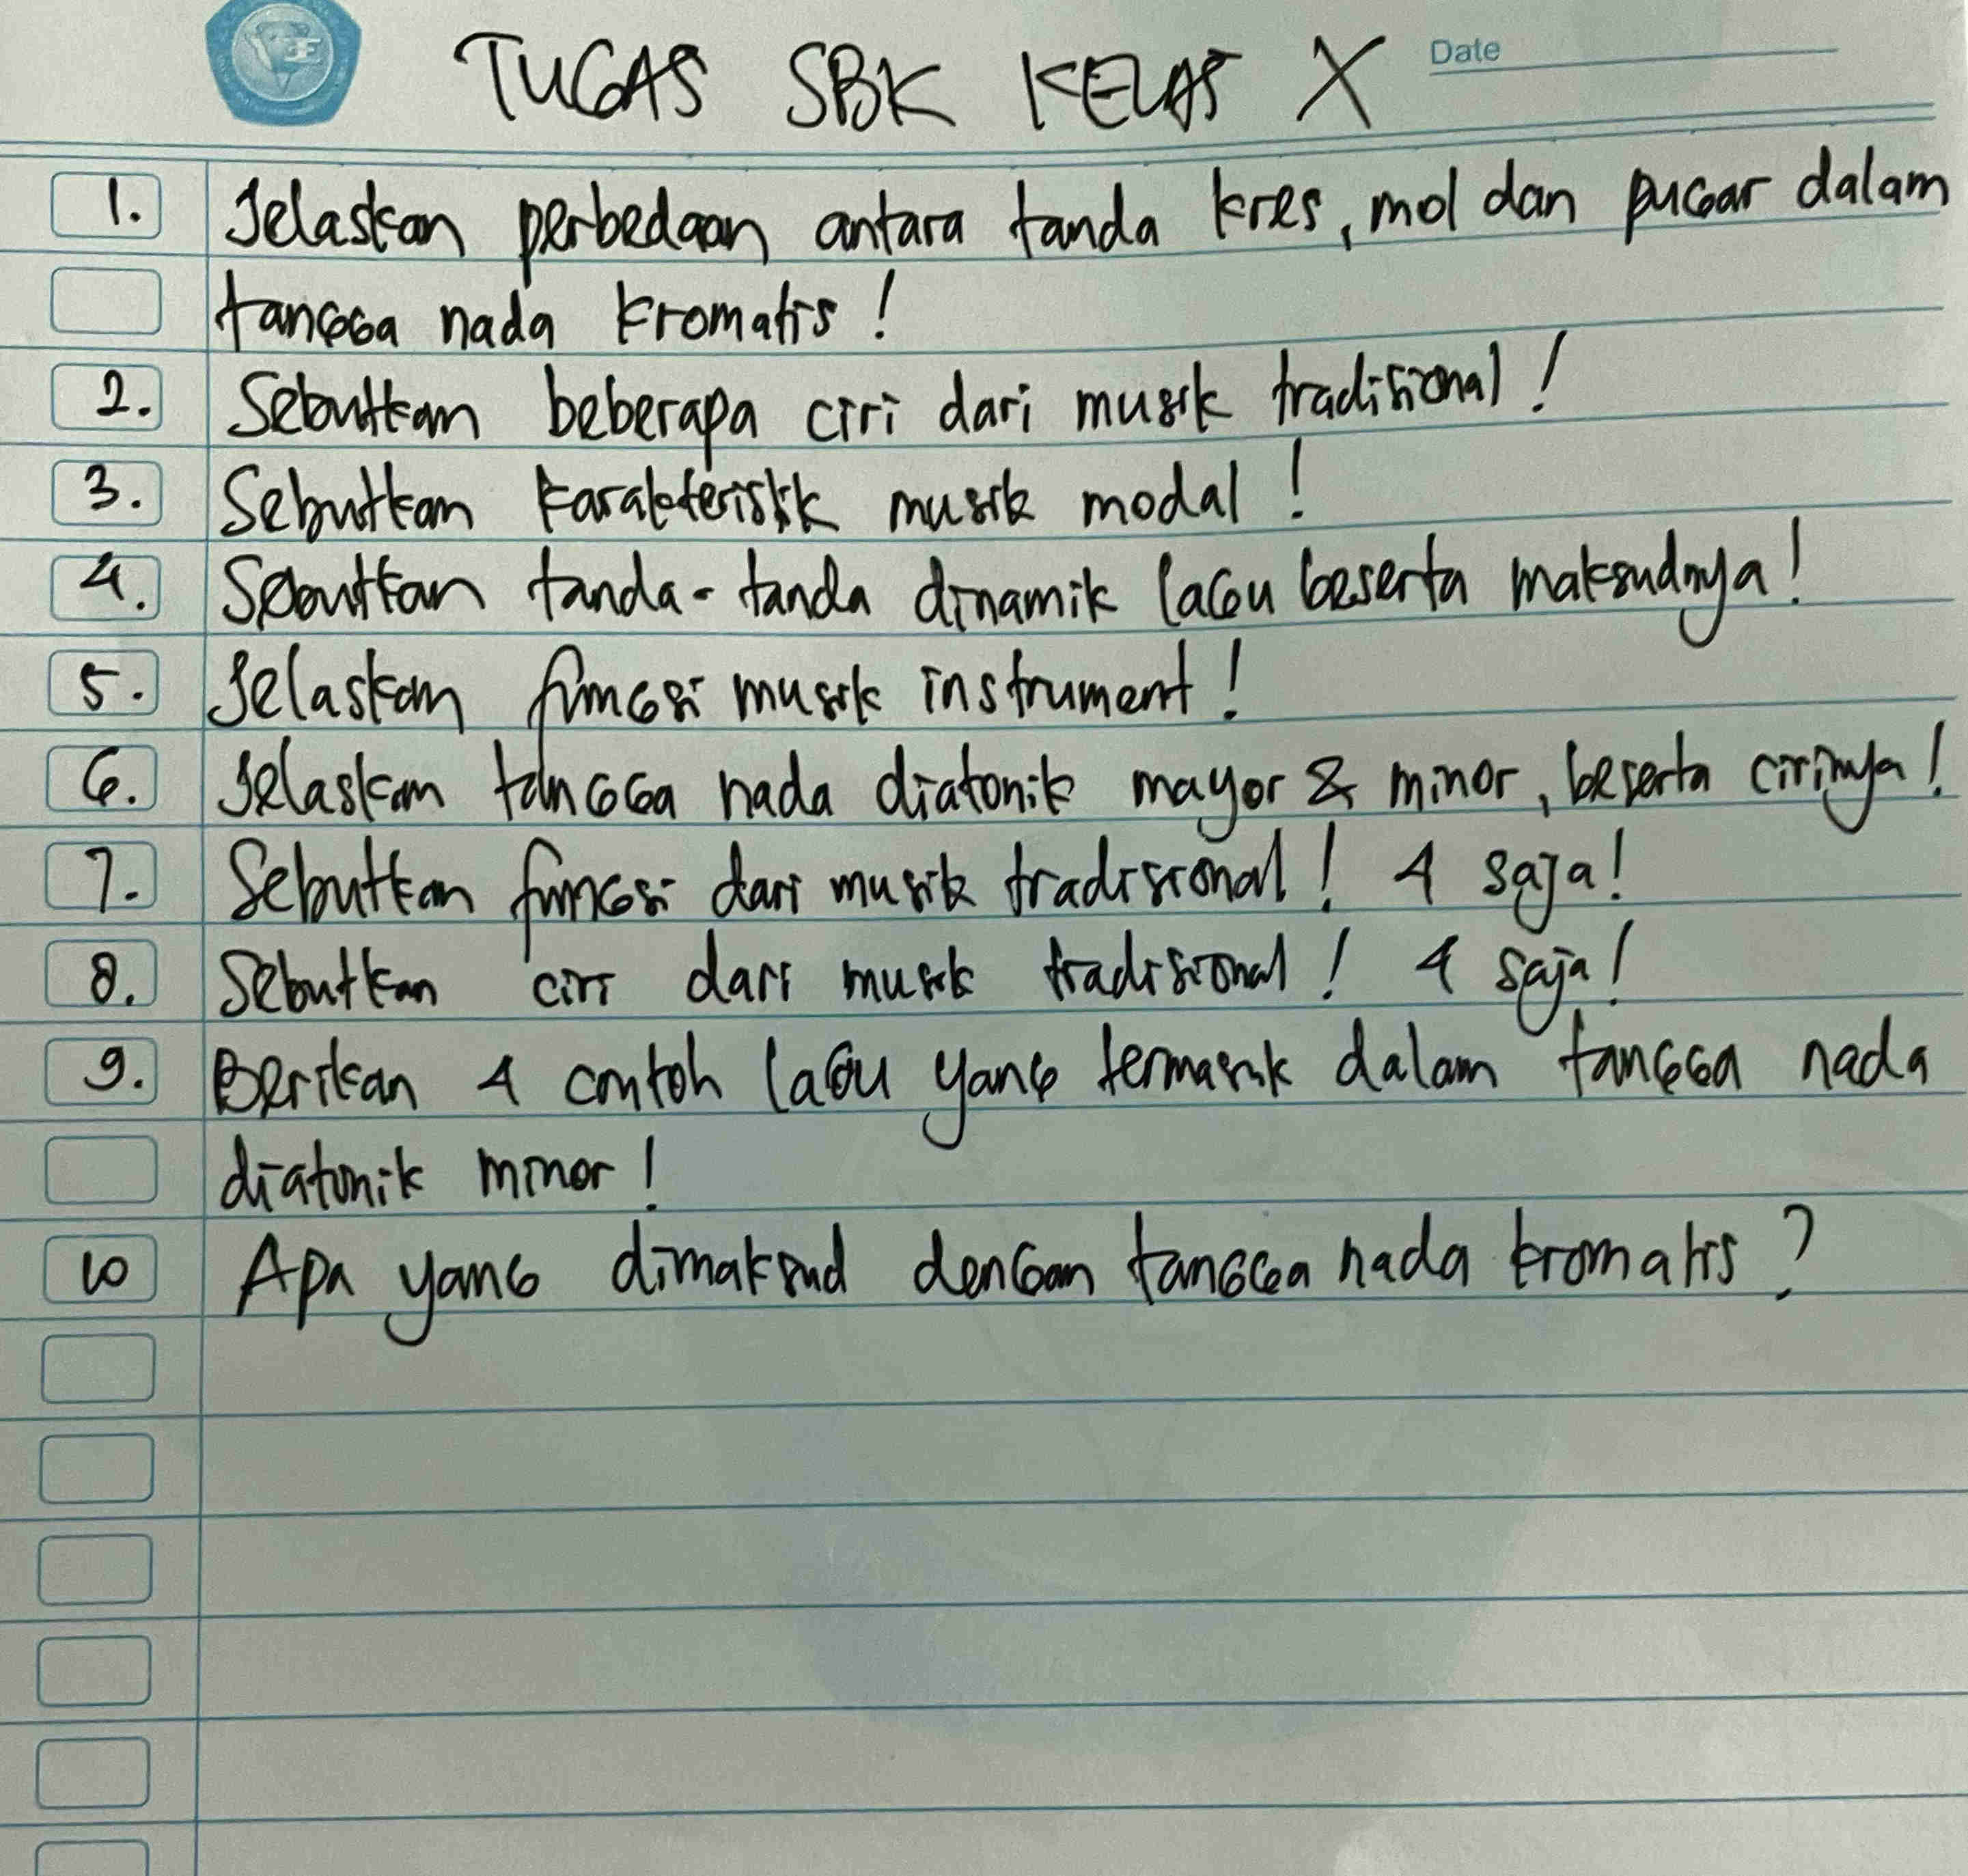 TUGAS SBK KELAS X
Date
1. Jelaskan perbedaan antara tanda kres, mol dan pugar dalam
tangga nada kromatis !
2. Sebutkan beberapa ciri dari musik tradisional !
3. Sebutkan karakteristik musik modal !
4. Sebutkan tanda-tanda dinamik lagu beserta maksudnya !
5. Jelaskan fungsi musik instrument !
6. Jelaskan tangga nada diatonik mayor & minor, beserta cirinya !
7. Sebutkan fungsi dari musik tradisional ! 4 saja !
8. Sebutkan ciri dari musik tradisional ! 4 saja !
9. Berikan 4 contoh lagu yang termasuk dalam tangga nada
diatonik minor !
10 Apa yang dimaksud dengan tangga nada kromatis ?